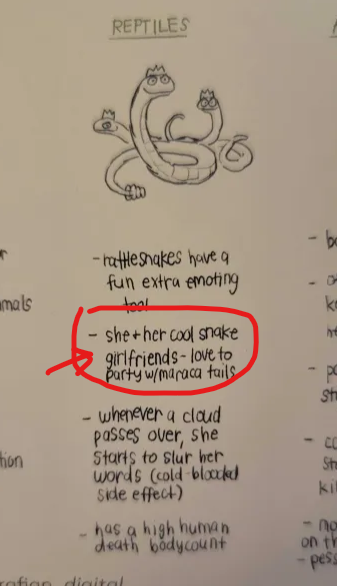 REPTILES
- rattlesnakes have a
fun extra emoting
tool
- she + her cool snake
girlfriends - love to
party w/maraca tails
- whenever a cloud
passes over, she
starts to slur her
words (cold-blooded
side effect)
- has a high human
death bodycount